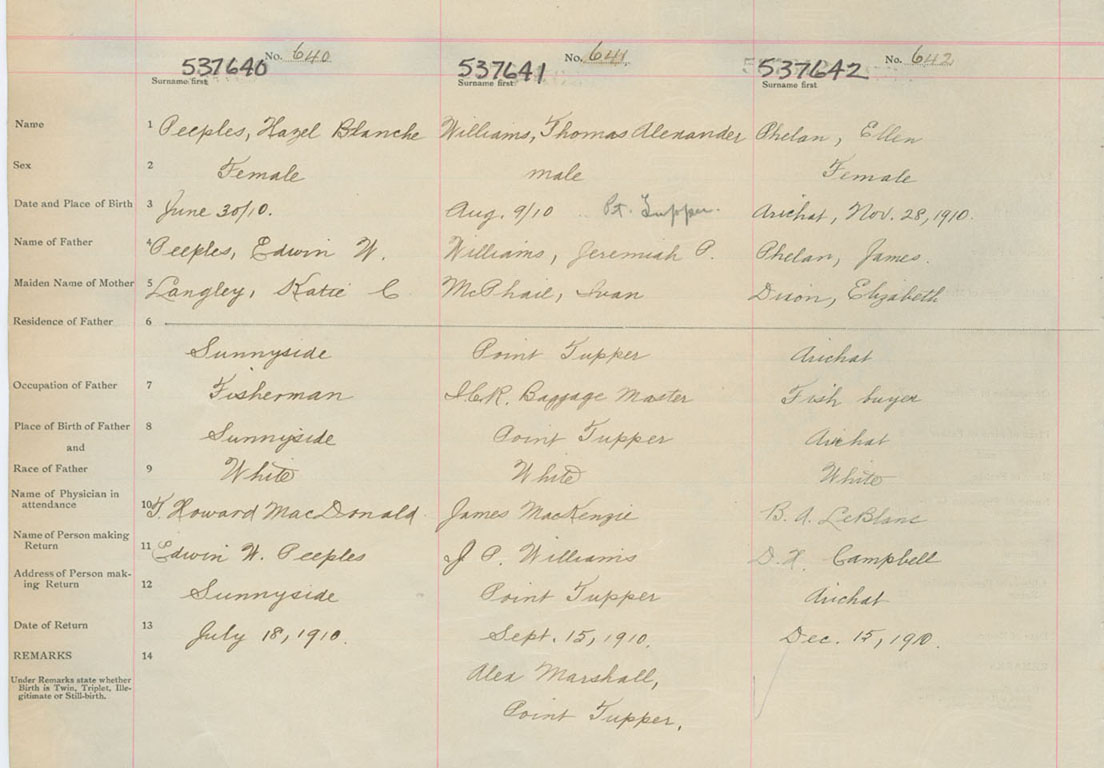 No. 640 No. 641 No. 642
537640 537641 537642
Surname first Surname first Surname first
Name 1 Peeples, Hazel Blanche Williams, Thomas Alexander Phelan, Ellen
Sex 2 Female male Female
Date and Place of Birth 3 June 30/10. Aug. 9/10 Pt. Tupper. Arichat, Nov. 28, 1910.
Name of Father 4 Peeples, Edwin W. Williams, Jeremiah P. Phelan, James.
Maiden Name of Mother 5 Langley, Katie C McPhail, Ivan Dixon, Elizabeth
Residence of Father 6
Sunnyside Point Tupper Arichat
Occupation of Father 7 Fisherman I.C.R. Baggage Master Fish buyer
Place of Birth of Father 8 Sunnyside Point Tupper Arichat
and
Race of Father 9 White White White
Name of Physician in
attendance 10 T. Howard MacDonald James MacKenzie B. A. LeBlanc
Name of Person making
Return 11 Edwin W. Peeples J P. Williams Campbell
Address of Person mak-
ing Return 12 Sunnyside Point Tupper Arichat
Date of Return 13 July 18, 1910. Sept. 15, 1910. Dec. 15, 1910.
REMARKS 14
Alex Marshall,
Point Tupper.
Under Remarks state whether
Birth is Twin, Triplet, Ille-
gitimate or Still-birth.